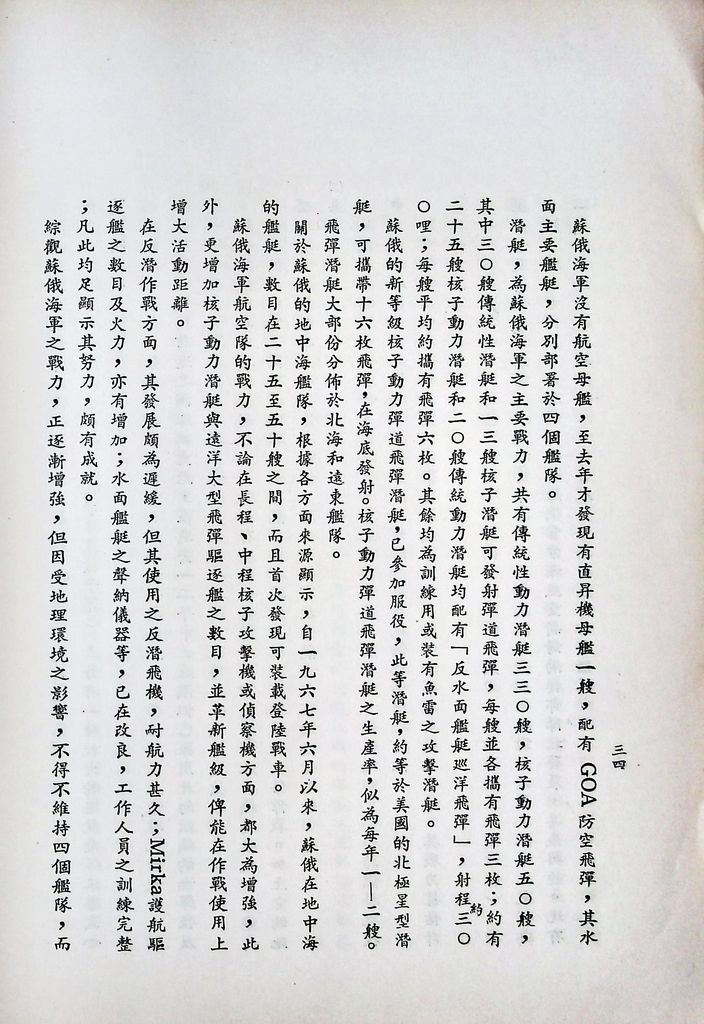 三四
蘇俄海軍沒有航空母艦，至去年才發現有直昇機母艦一艘，配有 GOA 防空飛彈，其水
面主要艦艇，分別部署於四個艦隊。
潛艇，為蘇俄海軍之主要戰力，共有傳統性動力潛艇三三〇艘，核子動力潛艇五〇艘，
其中三〇艘傳統性潛艇和一三艘核子潛艇可發射彈道飛彈，每艘並各攜有飛彈三枚；約有
二十五艘核子動力潛艇和二〇艘傳統動力潛艇均配有「反水面艦艇巡洋飛彈」，射程約三〇
〇哩；每艘平均約攜有飛彈六枚。其餘均為訓練用或裝有魚雷之攻擊潛艇。
蘇俄的新等級核子動力彈道飛彈潛艇，已參加服役，此等潛艇，約等於美國的北極星型潛
艇，可攜帶十六枚飛彈，在海底發射。核子動力彈道飛彈潛艇之生產率，似為每年一—二艘。
飛彈潛艇大部份分佈於北海和遠東艦隊。
關於蘇俄的地中海艦隊，根據各方面來源顯示，自一九六七年六月以來，蘇俄在地中海
的艦艇，數目在二十五至五十艘之間，而且首次發現可裝載登陸戰車。
蘇俄海軍航空隊的戰力，不論在長程、中程核子攻擊機或偵察機方面，都大為增強，此
外，更增加核子動力潛艇與遠洋大型飛彈驅逐艦之數目，並革新艦級，俾能在作戰使用上
增大活動距離。
在反潛作戰方面，其發展頗為遲緩，但其使用之反潛飛機，耐航力甚久；Mirka護航驅
逐艦之數目及火力，亦有增加；水面艦艇之聲納儀器等，已在改良，工作人員之訓練完整
；凡此均足顯示其努力，頗有成就。
綜觀蘇俄海軍之戰力，正逐漸增強，但因受地理環境之影響，不得不維持四個艦隊，而